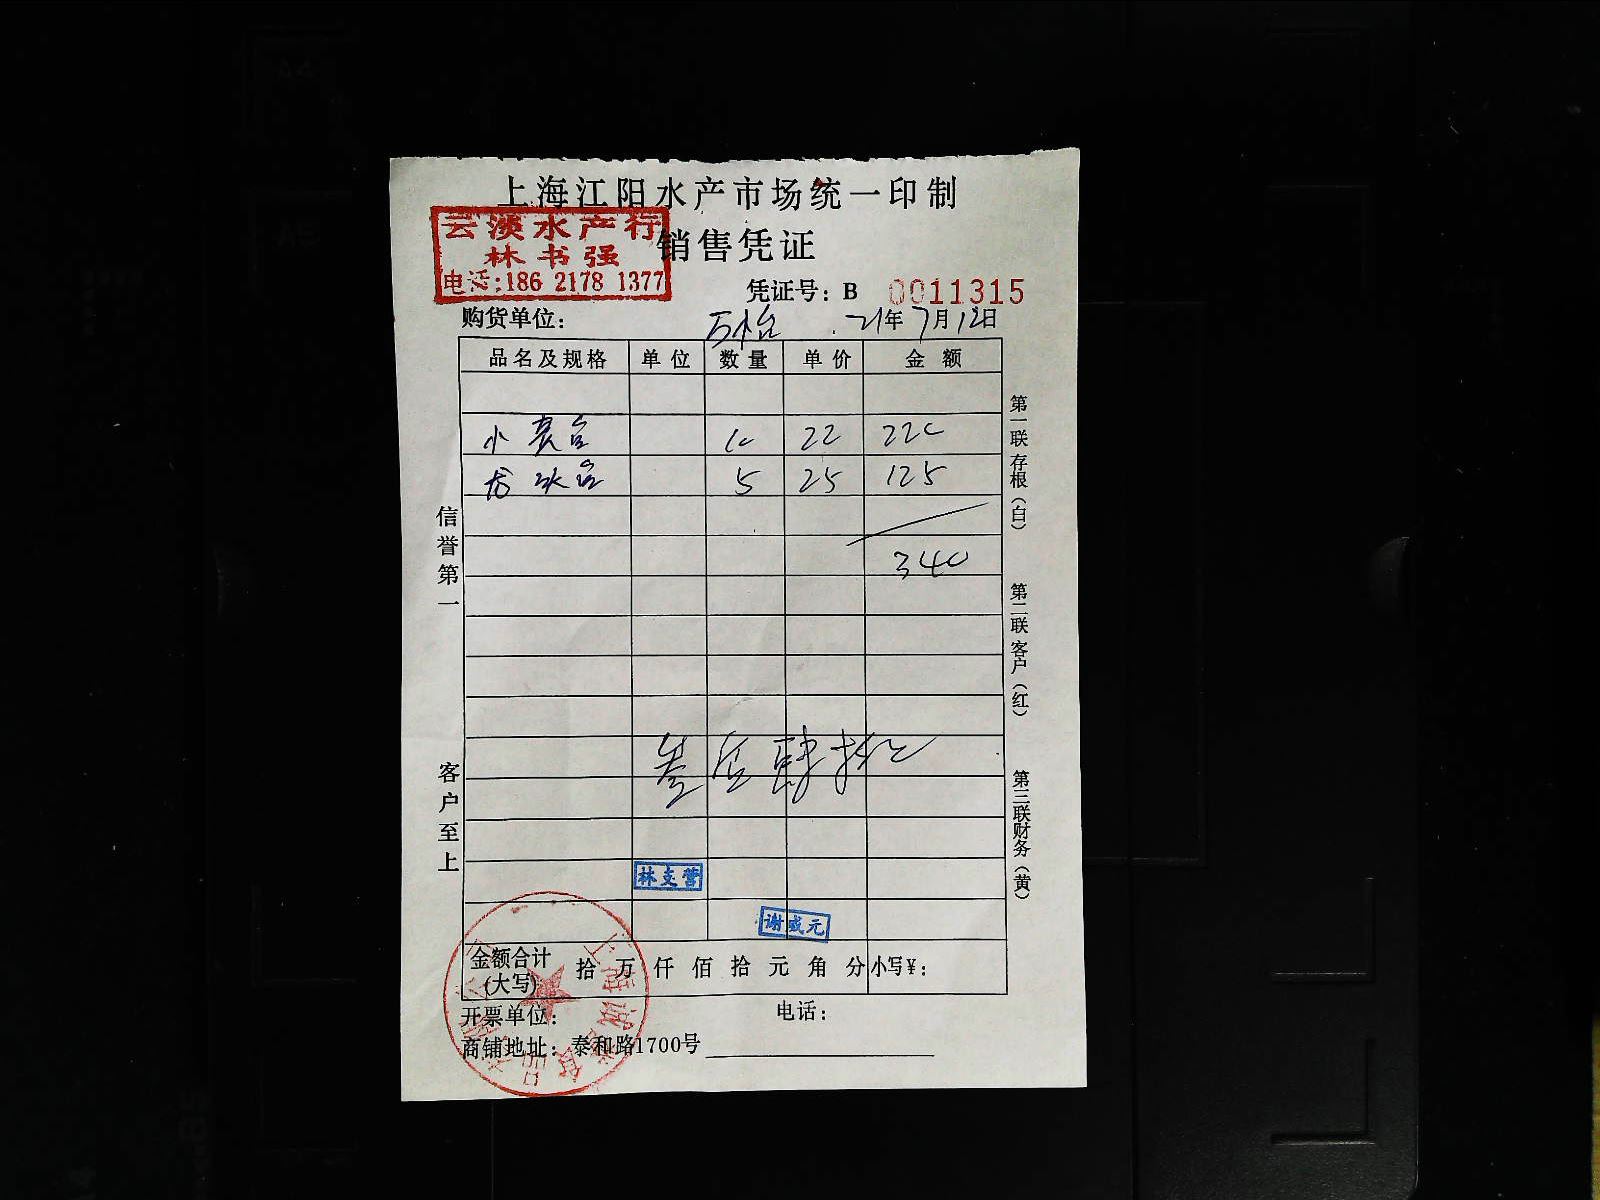 上海江阳水产市场统一印制
云淡水产行
林书强
电话:186 2178 1377
销售凭证
凭证号：B 0011315
购货单位： 21年7月12日
品名及规格 单位 数量 单价 金额
小 10 22 220
5 25 125
340
叁佰肆拾元
林支营
谢成元
金额合计(大写) 拾 万 仟 佰 拾 元 角 分 小写¥：
开票单位： 电话：
商铺地址：泰和路1700号
信誉第一
客户至上
第一联存根（白）
第二联客户（红）
第三联财务（黄）